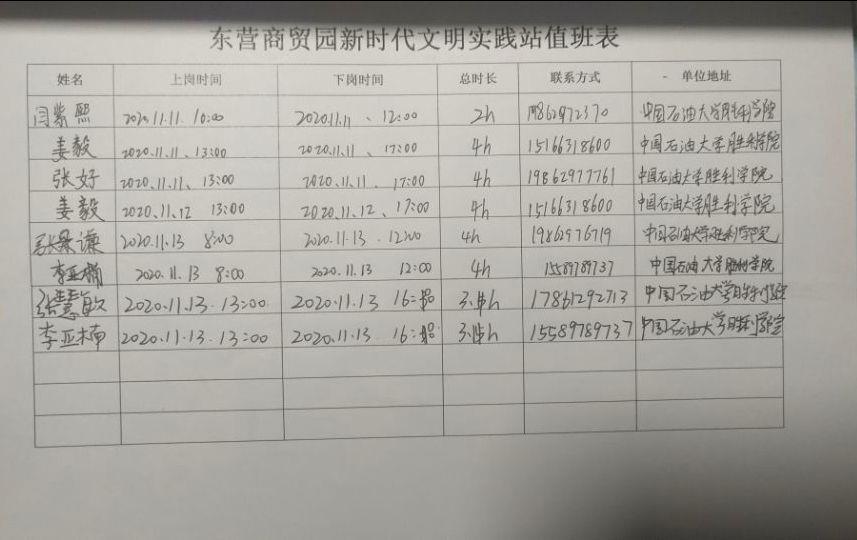 东营商贸园新时代文明实践站值班表
姓名 上岗时间 下岗时间 总时长 联系方式 - 单位地址
闫紫熙 2020.11.11. 10:00 2020.11.11 、 12:00 2h 19862972370 中国石油大学胜利学院
姜毅 2020.11.11、13:00 2020.11.11 、 17:00 4h 15166318600 中国石油大学胜利学院
张好 2020.11.11、 13:00 2020.11.11 . 17:00 4h 19862977761 中国石油大学胜利学院
姜毅 2020.11.12 13:00 2020.11.12 、 17:00 4h 15166318600 中国石油大学胜利学院
张景谦 2020.11.13 8:00 2020.11.13 . 12:00 4h 19862976719 中国石油大学胜利学院
李亚楠 2020.11.13 8:00 2020.11.13 12:00 4h 15589789737 中国石油大学胜利学院
张慧敏 2020.11.13. 13:00 2020.11.13 16: 3. h 17861292713 中国石油大学胜利学院
李亚楠 2020.11.13. 13:00 2020.11.13 16: 3. h 15589789737 中国石油大学胜利学院